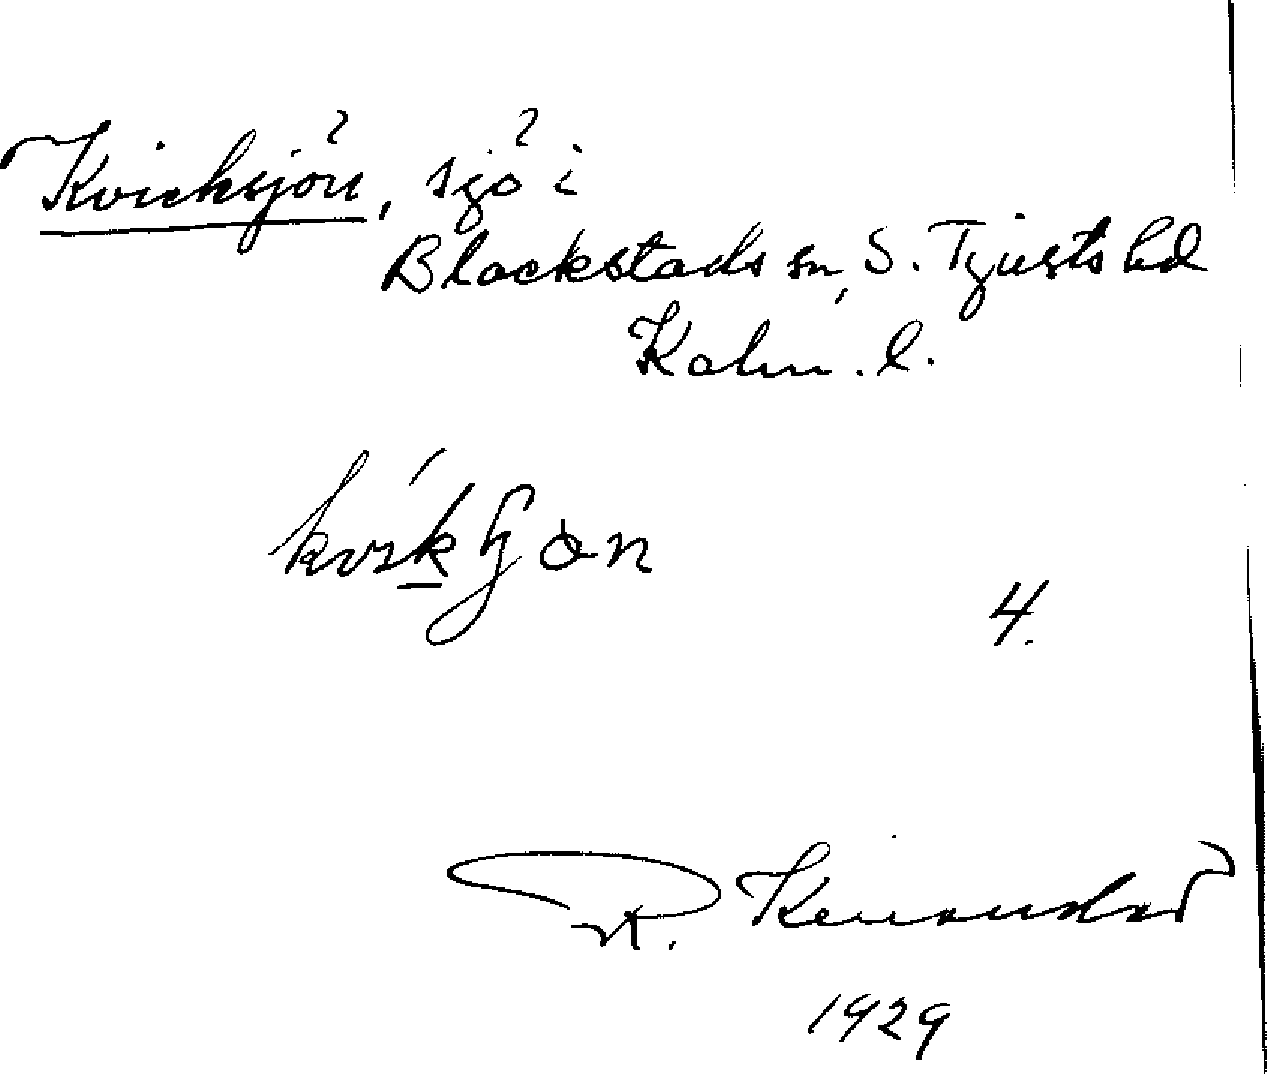 Kvicksjön, sjö i
Blackstads sn, S. Tjusts hd
Kalm. l.
4.
R.
1929